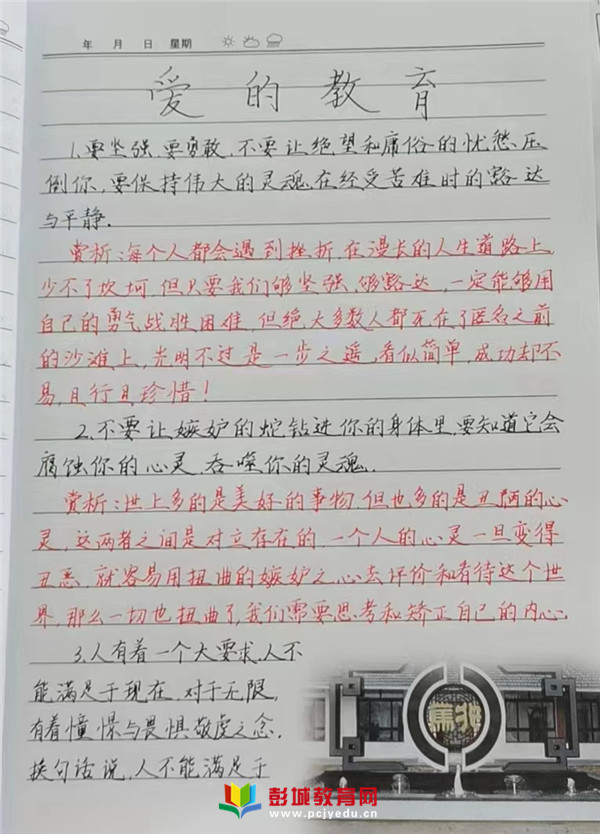 年 月 日 星期
爱的教育
1.要坚强,要勇敢,不要让绝望和庸俗的忧愁压
倒你,要保持伟大的灵魂在经受苦难时的豁达
与平静.
赏析:每个人都会遇到挫折,在漫长的人生道路上
少不了坎坷,但只要我们够坚强,够豁达,一定能够用
自己的勇气战胜困难,但绝大多数人都死在了匿名之前
的沙滩上,光明不过是一步之遥,看似简单,成功却不
易,且行且珍惜!
2.不要让嫉妒的蛇钻进你的身体里,要知道它会
腐蚀你的心灵,吞噬你的灵魂.
赏析:世上多的是美好的事物,但也多的是丑陋的心
灵,这两者之间是对立存在的,一个人的心灵一旦变得
丑恶,就容易用扭曲的嫉妒之心去评价和看待这个世
界,那么一切也扭曲了,我们需要思考和矫正自己的内心.
3.人有着一个大要求,人不
能满足于现在,对于无限,
有着憧憬与畏惧敬虔之念.
换句话说,人不能满足于
彭城教育网
www.pcjyedu.cn